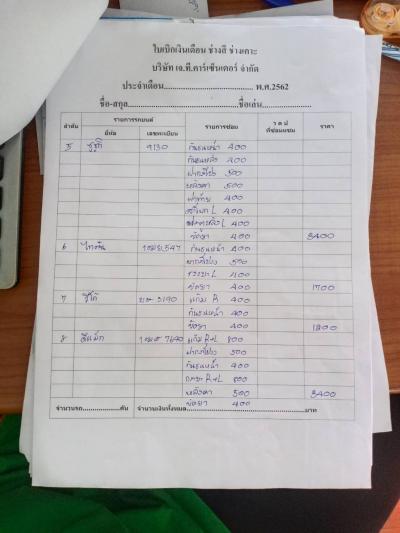 ใบเบิกเงินเดือน ช่างสี ช่างเคาะ
บริษัท เจ.ที.คาร์เซ็นเตอร์ จำกัด
ประจำเดือน........................................ พ.ศ.2562
ชื่อ-สกุล........................................ชื่อเล่น........................................
ลำดับ รายการรถยนต์ รายการซ่อม ว ด ป ที่ซ่อมแซม ราคา
ยี่ห้อ เลขทะเบียน
5 ซูซูกิ 9130 กันชนหน้า 400
กันชนหลัง 400
ฝากระโปรง 500
หลังคา 500
ฝาท้าย 400
L 400
L 400
ขัดยา 400 3400
6 547 กันชนหน้า 400
ฝากระโปรง 500
L 400
ขัดยา 400 1700
7 วีโก้ 3190 แก้ม R 400
กันชนหน้า 400
ขัดยา 400 1200
8 ดีแม็ก 7690 แก้ม R+L 800
ฝากระโปรง 500
กันชนหน้า 400
R+L 800
หลังคา 500 3400
ขัดยา 400
จำนวนรถ....................คัน จำนวนเงินทั้งหมด........................................บาท